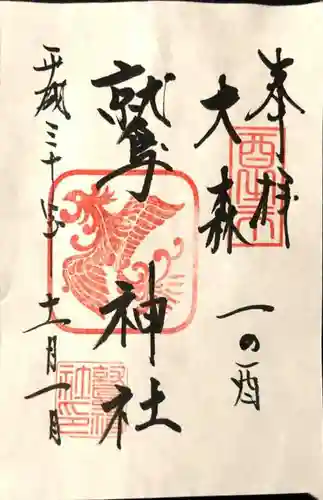 奉拝
大森
一の酉
鷲神社
平成三十年 十一月一日